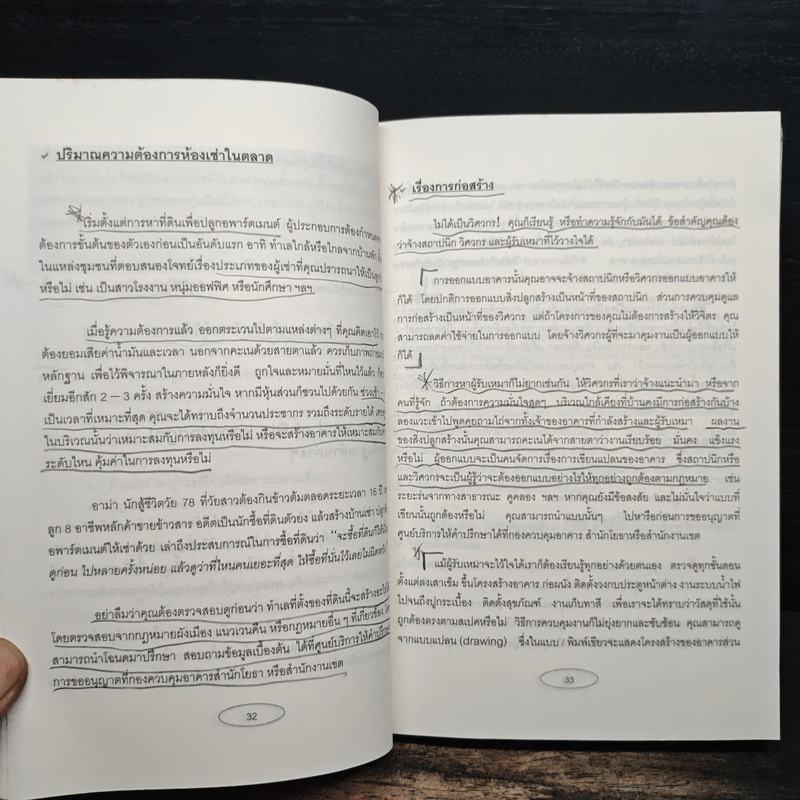 ปริมาณความต้องการห้องเช่าในตลาด
เริ่มตั้งแต่การหาที่ดินเพื่อปลูกอพาร์ตเมนต์ ผู้ประกอบการต้องกำหนด
ต้องการขั้นต้นของตัวเองก่อนเป็นอันดับแรก อาทิ ทำเลใกล้หรือไกลจากบ้านพัก
ในแหล่งชุมชนที่ตอบสนองโจทย์เรื่องประเภทของผู้เช่าที่คุณปรารถนาให้เป็น
หรือไม่ เช่น เป็นสาวโรงงาน หนุ่มออฟฟิศ หรือนักศึกษา ฯลฯ
เมื่อรู้ความต้องการแล้ว ออกตระเวนไปตามแหล่งต่างๆ ที่คุณคิดเอาไว้
ต้องยอมเสียค่าน้ำมันและเวลา นอกจากคะเนด้วยสายตาแล้ว ควรเก็บภาพถ่าย
หลักฐาน เพื่อไว้พิจารณาในภายหลังก็ยิ่งดี ถูกใจและหมายมั่นที่ไหนไว้แล้ว
เยี่ยมอีกสัก 2 – 3 ครั้ง สร้างความมั่นใจ หากมีหุ้นส่วนก็ชวนไปด้วยกัน ช่วงเช้า -
เป็นเวลาที่เหมาะที่สุด คุณจะได้ทราบถึงจำนวนประชากร รวมถึงระดับรายได้
ในบริเวณนั้นว่าเหมาะสมกับการลงทุนหรือไม่ หรือจะสร้างอาคารให้เหมาะสมกับ
ระดับไหน คุ้มค่าในการลงทุนหรือไม่
อาม่า นักสู้ชีวิตวัย 78 ที่วัยสาวต้องกินข้าวต้มตลอดระยะเวลา 16 ปี
ลูก 8 อาชีพหลักค้าขายข้าวสาร อดีตเป็นนักซื้อที่ดินตัวยง แล้วสร้างบ้านเช่า
อพาร์ตเมนต์ให้เช่าด้วย เล่าถึงประสบการณ์ในการซื้อที่ดินว่า “จะซื้อที่ดินก็ให้
ดูก่อน ไปหลายครั้งหน่อย แล้วดูว่าที่ไหนคนเยอะที่สุด ให้ซื้อที่นั่นไว้เลยไม่ผิดหวัง”
อย่าลืมว่าคุณต้องตรวจสอบดูก่อนว่า ทำเลที่ตั้งของที่ดินนี้จะสร้างอะไร
โดยตรวจสอบจากกฎหมายผังเมือง แนวเวนคืน หรือกฎหมายอื่น ๆ ที่เกี่ยวข้อง
สามารถนำโฉนดมาปรึกษา สอบถามข้อมูลเบื้องต้น ได้ที่ศูนย์บริการให้คำปรึกษา
การขออนุญาตที่กองควบคุมอาคารสำนักโยธา หรือสำนักงานเขต
32
เรื่องการก่อสร้าง
ไม่ได้เป็นวิศวกร! คุณก็เรียนรู้ หรือทำความรู้จักกับมันได้ ข้อสำคัญคุณต้อง
ว่าจ้างสถาปนิก วิศวกร และผู้รับเหมาที่ไว้วางใจได้
การออกแบบอาคารนั้นคุณอาจจะจ้างสถาปนิกหรือวิศวกรออกแบบอาคารให้
ก็ได้ โดยปกติการออกแบบสิ่งปลูกสร้างเป็นหน้าที่ของสถาปนิก ส่วนการควบคุมดูแล
การก่อสร้างเป็นหน้าที่ของวิศวกร แต่ถ้าโครงการของคุณไม่ต้องการสร้างให้วิจิตร คุณ
สามารถลดค่าใช้จ่ายในการออกแบบ โดยจ้างวิศวกรผู้ที่จะมาคุมงานเป็นผู้ออกแบบให้
ก็ได้
วิธีการหาผู้รับเหมาก็ไม่ยากเช่นกัน ให้วิศวกรที่เราว่าจ้างแนะนำมา หรือจาก
คนที่รู้จัก ถ้าต้องการความมั่นใจสุดๆ บริเวณใกล้เคียงที่บ้านคงมีการก่อสร้างกันบ้าง
ลองแวะเข้าไปพูดคุยถามไถ่จากทั้งเจ้าของอาคารที่กำลังสร้างและผู้รับเหมา ผลงาน
ของสิ่งปลูกสร้างนั้นคุณสามารถคะเนได้จากสายตาว่างานเรียบร้อย มั่นคง แข็งแรง
หรือไม่ ผู้ออกแบบจะเป็นคนจัดการเรื่องการเขียนแปลนของอาคาร ซึ่งสถาปนิกหรือ
และวิศวกรจะเป็นผู้รู้ว่าจะต้องออกแบบอย่างไรให้ทุกอย่างถูกต้องตามกฎหมาย เช่น
ระยะร่นจากทางสาธารณะ คูคลอง ฯลฯ หากคุณยังมีข้อสงสัย และไม่มั่นใจว่าแบบที่
เขียนนั้นถูกต้องหรือไม่ คุณสามารถนำแบบนั้นๆ ไปหารือก่อนการขออนุญาตที่
ศูนย์บริการให้คำปรึกษาได้ที่กองควบคุมอาคาร สำนักโยธาหรือสำนักงานเขต
แม้ผู้รับเหมาจะไว้ใจได้เราก็ต้องเรียนรู้ทุกอย่างด้วยตนเอง ตรวจดูทุกขั้นตอน
ตั้งแต่ลงเสาเข็ม ขึ้นโครงสร้างอาคาร ก่อผนัง ติดตั้งวงกบประตูหน้าต่าง งานระบบน้ำไฟ
ไปจนถึงปูกระเบื้อง ติดตั้งสุขภัณฑ์ งานเก็บทาสี เพื่อเราจะได้ทราบว่าวัสดุที่ใช้นั้น
ถูกต้องตรงตามสเปคหรือไม่ วิธีการควบคุมงานก็ไม่ยุ่งยากและซับซ้อน คุณสามารถดู
จากแบบแปลน (drawing) ซึ่งในแบบ / พิมพ์เขียวจะแสดงโครงสร้างของอาคารส่วน
33